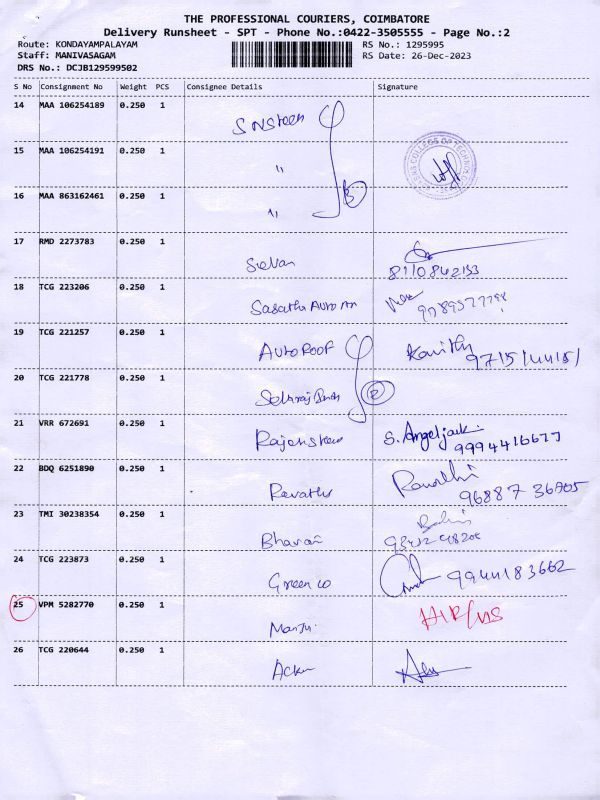 THE PROFESSIONAL COURIERS, COIMBATORE
Delivery Runsheet - SPT - Phone No.:0422-3505555 - Page No.:2
Route: KONDAYAMPALAYAM RS No.: 1295995
Staff: MANIVASAGAM RS Date: 26-Dec-2023
DRS No.: DCJB129599502
S No Consignment No Weight PCS Consignee Details Signature
14 MAA 106254189 0.250 1
15 MAA 106254191 0.250 1 "
16 MAA 863162461 0.250 1 "
3
17 RMD 2273783 0.250 1 Selvan
8110842153
18 TCG 223206 0.250 1
19 TCG 221257 0.250 1 AUTO ROOF Kavitha
20 TCG 221778 0.250 1 2
21 VRR 672691 0.250 1 S. Angel
9994416677
22 BDQ 6251890 0.250 1 Revathi Revathi
96887 36705
23 TMI 30238354 0.250 1 Bharani
24 TCG 223873 0.250 1 Green co 9944183662
25 VPM 5282770 0.250 1 Manju
26 TCG 220644 0.250 1